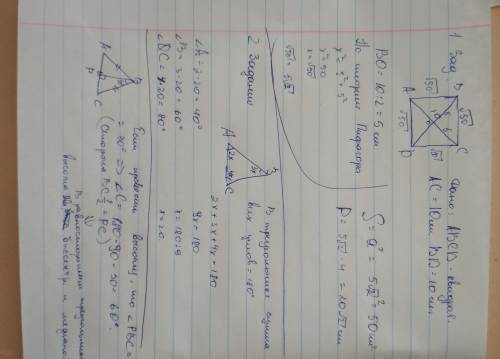 1 Зад.
B
A
C
D
√50
√50
√50
√50
5
5
Дано: ABCD - квадрат
AC = 10 см BD = 10 см
BO = 10:2 = 5 см
По теореме Пифагора
x² = 5² + 5²
x² = 50
x = √50
√50 = 5√2
S = a² = 5√2² = 50 см
P = 5√2 · 4 = 10√2 см
2 Задание
A
B
C
2x
3x
4x
В треугольнике сумма
всех углов = 180°
2x + 3x + 4x = 180
9x = 180
x = 180:9
x = 20
∠A = 2·20 = 40°
∠B = 3·20 = 60°
∠C = 4·20 = 80°
A
B
P
C
Если провести высоту, то ∠PBC =
= 30° => ∠C = 180-90-30 = 60°.
(Сторона BC ½ = PC)
В равностороннем треугольнике
высота биссектр и медиана